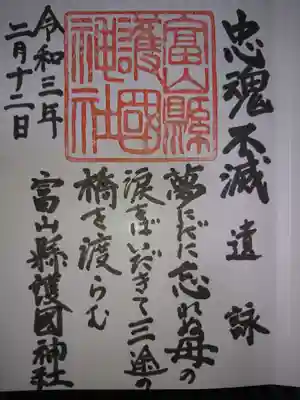 忠魂不滅 遺詠
富山縣
護國
神社
夢にだに忘れぬ母の
涙をばいだきて三途の
橋を渡らむ
富山縣護國神社
令和三年
二月十二日